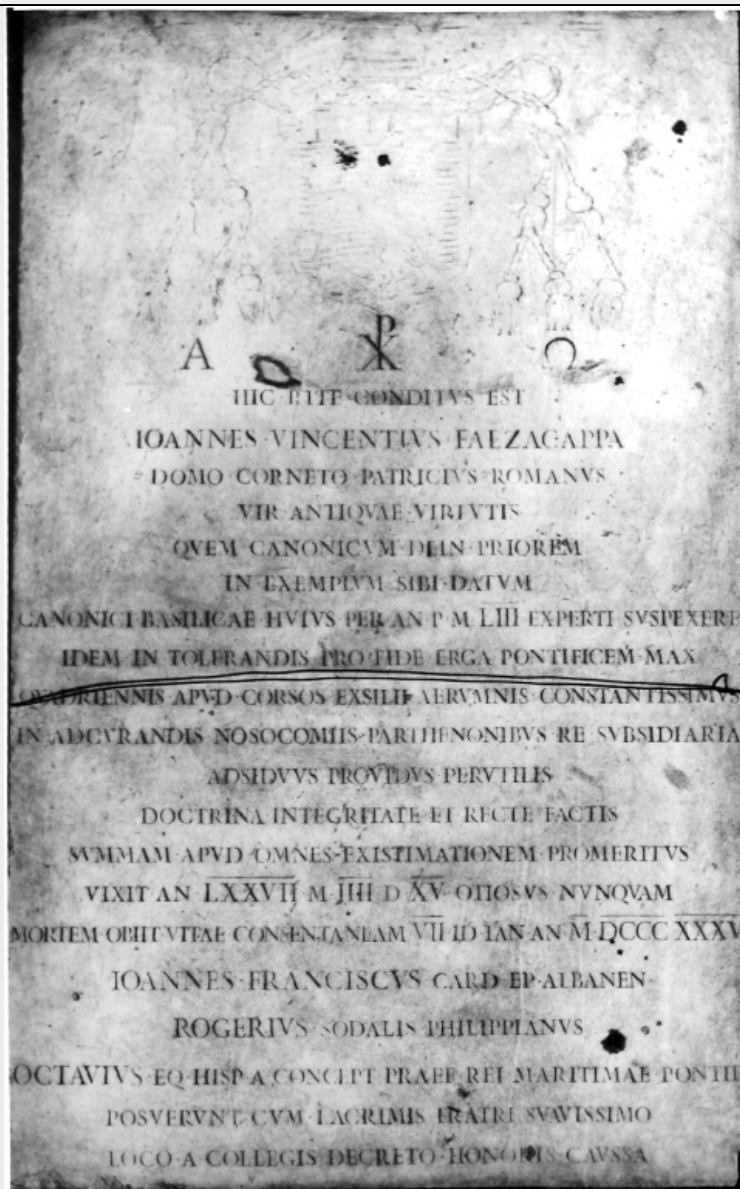 A ☧ Ω
HIC RITE·CONDITVS EST
IOANNES·VINCENTIVS·FALZACAPPA
DOMO·CORNETO·PATRICIVS·ROMANVS
VIR·ANTIQVAE·VIRTVTIS
QVEM·CANONICVM·DEIN·PRIOREM
IN·EXEMPLVM·SIBI·DATVM
CANONICI·BASILICAE·HVIVS·PER·AN·P·M·LIII·EXPERTI·SVSPEXERE
IDEM·IN·TOLERANDIS·PRO·FIDE·ERGA·PONTIFICEM·MAX
QVADRIENNIS·APVD·CORSOS·EXSILII·AERVMNIS·CONSTANTISSIMVS
IN·ADCVRANDIS·NOSOCOMIIS·PARTHENONIBVS·RE·SVBSIDIARIA
ADSIDVVS·PROVIDVS·PERVTILIS
DOCTRINA·INTEGRITATE·ET·RECTE·FACTIS
SVMMAM·APVD·OMNES·EXISTIMATIONEM·PROMERITVS
VIXIT·AN·LXXVII·M·IIII·D·XV·OTIOSVS·NVNQVAM
MORTEM·OBIIT·VITAE·CONSENTANEAM·VII·ID·IAN·AN·M·DCCC·XXXV
IOANNES·FRANCISCVS·CARD·EP·ALBANEN
ROGERIVS·SODALIS·PHILIPPIANVS
OCTAVIVS·EQ·HISP·A·CONCEPT·PRAEF·REI·MARITIMAE·PONTIF
POSVERVNT·CVM·LACRIMIS·FRATRI·SVAVISSIMO
LOCO·A·COLLEGIS·DECRETO·HONORIS·CAVSSA